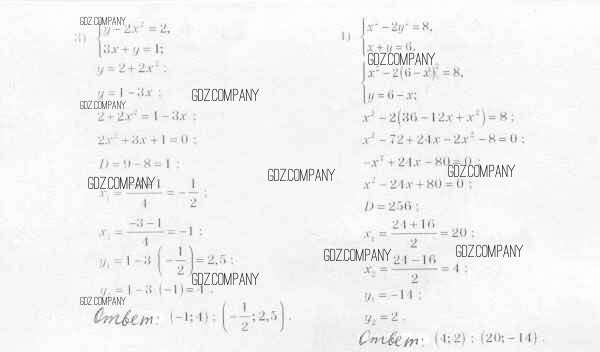 GDZ.COMPANY
3) { y − 2x² = 2,
3x + y = 1;
y = 2 + 2x² ;
y = 1 − 3x ;
GDZ.COMPANY
GDZ.COMPANY
2 + 2x² = 1 − 3x ;
2x² + 3x + 1 = 0 ;
D = 9 − 8 = 1 ;
GDZ.COMPANY
x₁ = −3+1/4 = −1/2 ;
x₂ = −3−1/4 = −1 ;
y₁ = 1 − 3·(−1/2) = 2,5 ;
GDZ.COMPANY
y₂ = 1 − 3·(−1) = 4 .
GDZ.COMPANY
Ответ: (−1; 4) ; (−1/2; 2,5) .
GDZ.COMPANY
1) { x² − 2y² = 8,
x + y = 6,
GDZ.COMPANY
{ x² − 2(6 − x)² = 8,
y = 6 − x;
x² − 2(36 − 12x + x²) = 8 ;
x² − 72 + 24x − 2x² − 8 = 0 ;
−x² + 24x − 80 = 0 ;
GDZ.COMPANY
x² − 24x + 80 = 0 ;
D = 256 ;
x₁ = 24+16/2 = 20 ;
GDZ.COMPANY
GDZ.COMPANY
x₂ = 24−16/2 = 4 ;
y₁ = −14 ;
y₂ = 2 .
Ответ: (4; 2) ; (20; −14) .